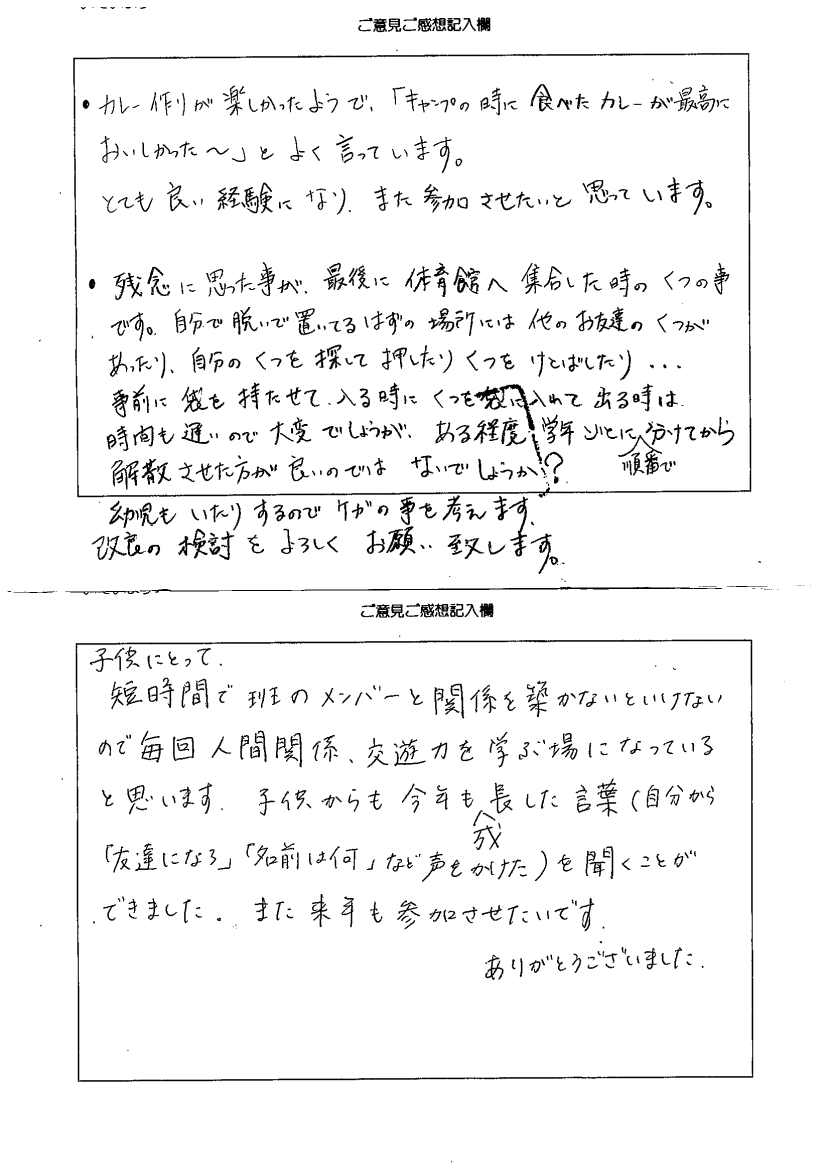 ご意見ご感想記入欄
・カレー作りが楽しかったようで、「キャンプの時に食べたカレーが最高に
おいしかった～」とよく言っています。
とても良い経験になり、また参加させたいと思っています。
・残念に思った事が、最後に体育館へ集合した時のくつの事
です。自分で脱いで置いてるはずの場所には他のお友達のくつが
あったり、自分のくつを探して押したりくつをけとばしたり・・・
事前に袋を持たせて、入る時にくつを袋に入れて出る時は
時間も遅いので大変でしょうが、ある程度学年ごとに順番で分けてから
解散させた方が良いのではないでしょうか?
幼児もいたりするのでケガの事を考えます、
改良の検討をよろしくお願い致します。
ご意見ご感想記入欄
子供にとって、
短時間で班のメンバーと関係を築かないといけない
ので毎回人間関係、交遊力を学ぶ場になっている
と思います。子供からも今年も成長した言葉(自分から
「友達になろ」「名前は何」など声をかけた)を聞くことが
できました。また来年も参加させたいです。
ありがとうございました.